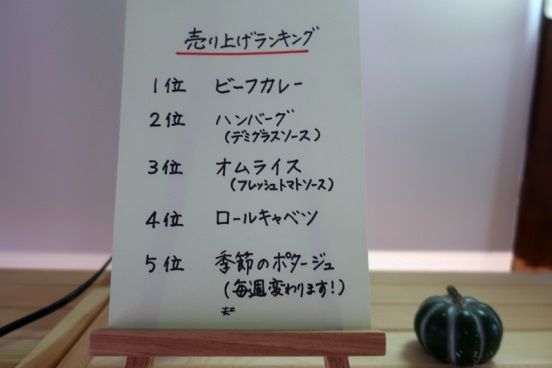 売り上げランキング
1位 ビーフカレー
2位 ハンバーグ
(デミグラスソース)
3位 オムライス
(フレッシュトマトソース)
4位 ロールキャベツ
5位 季節のポタージュ
(毎週変わります!)